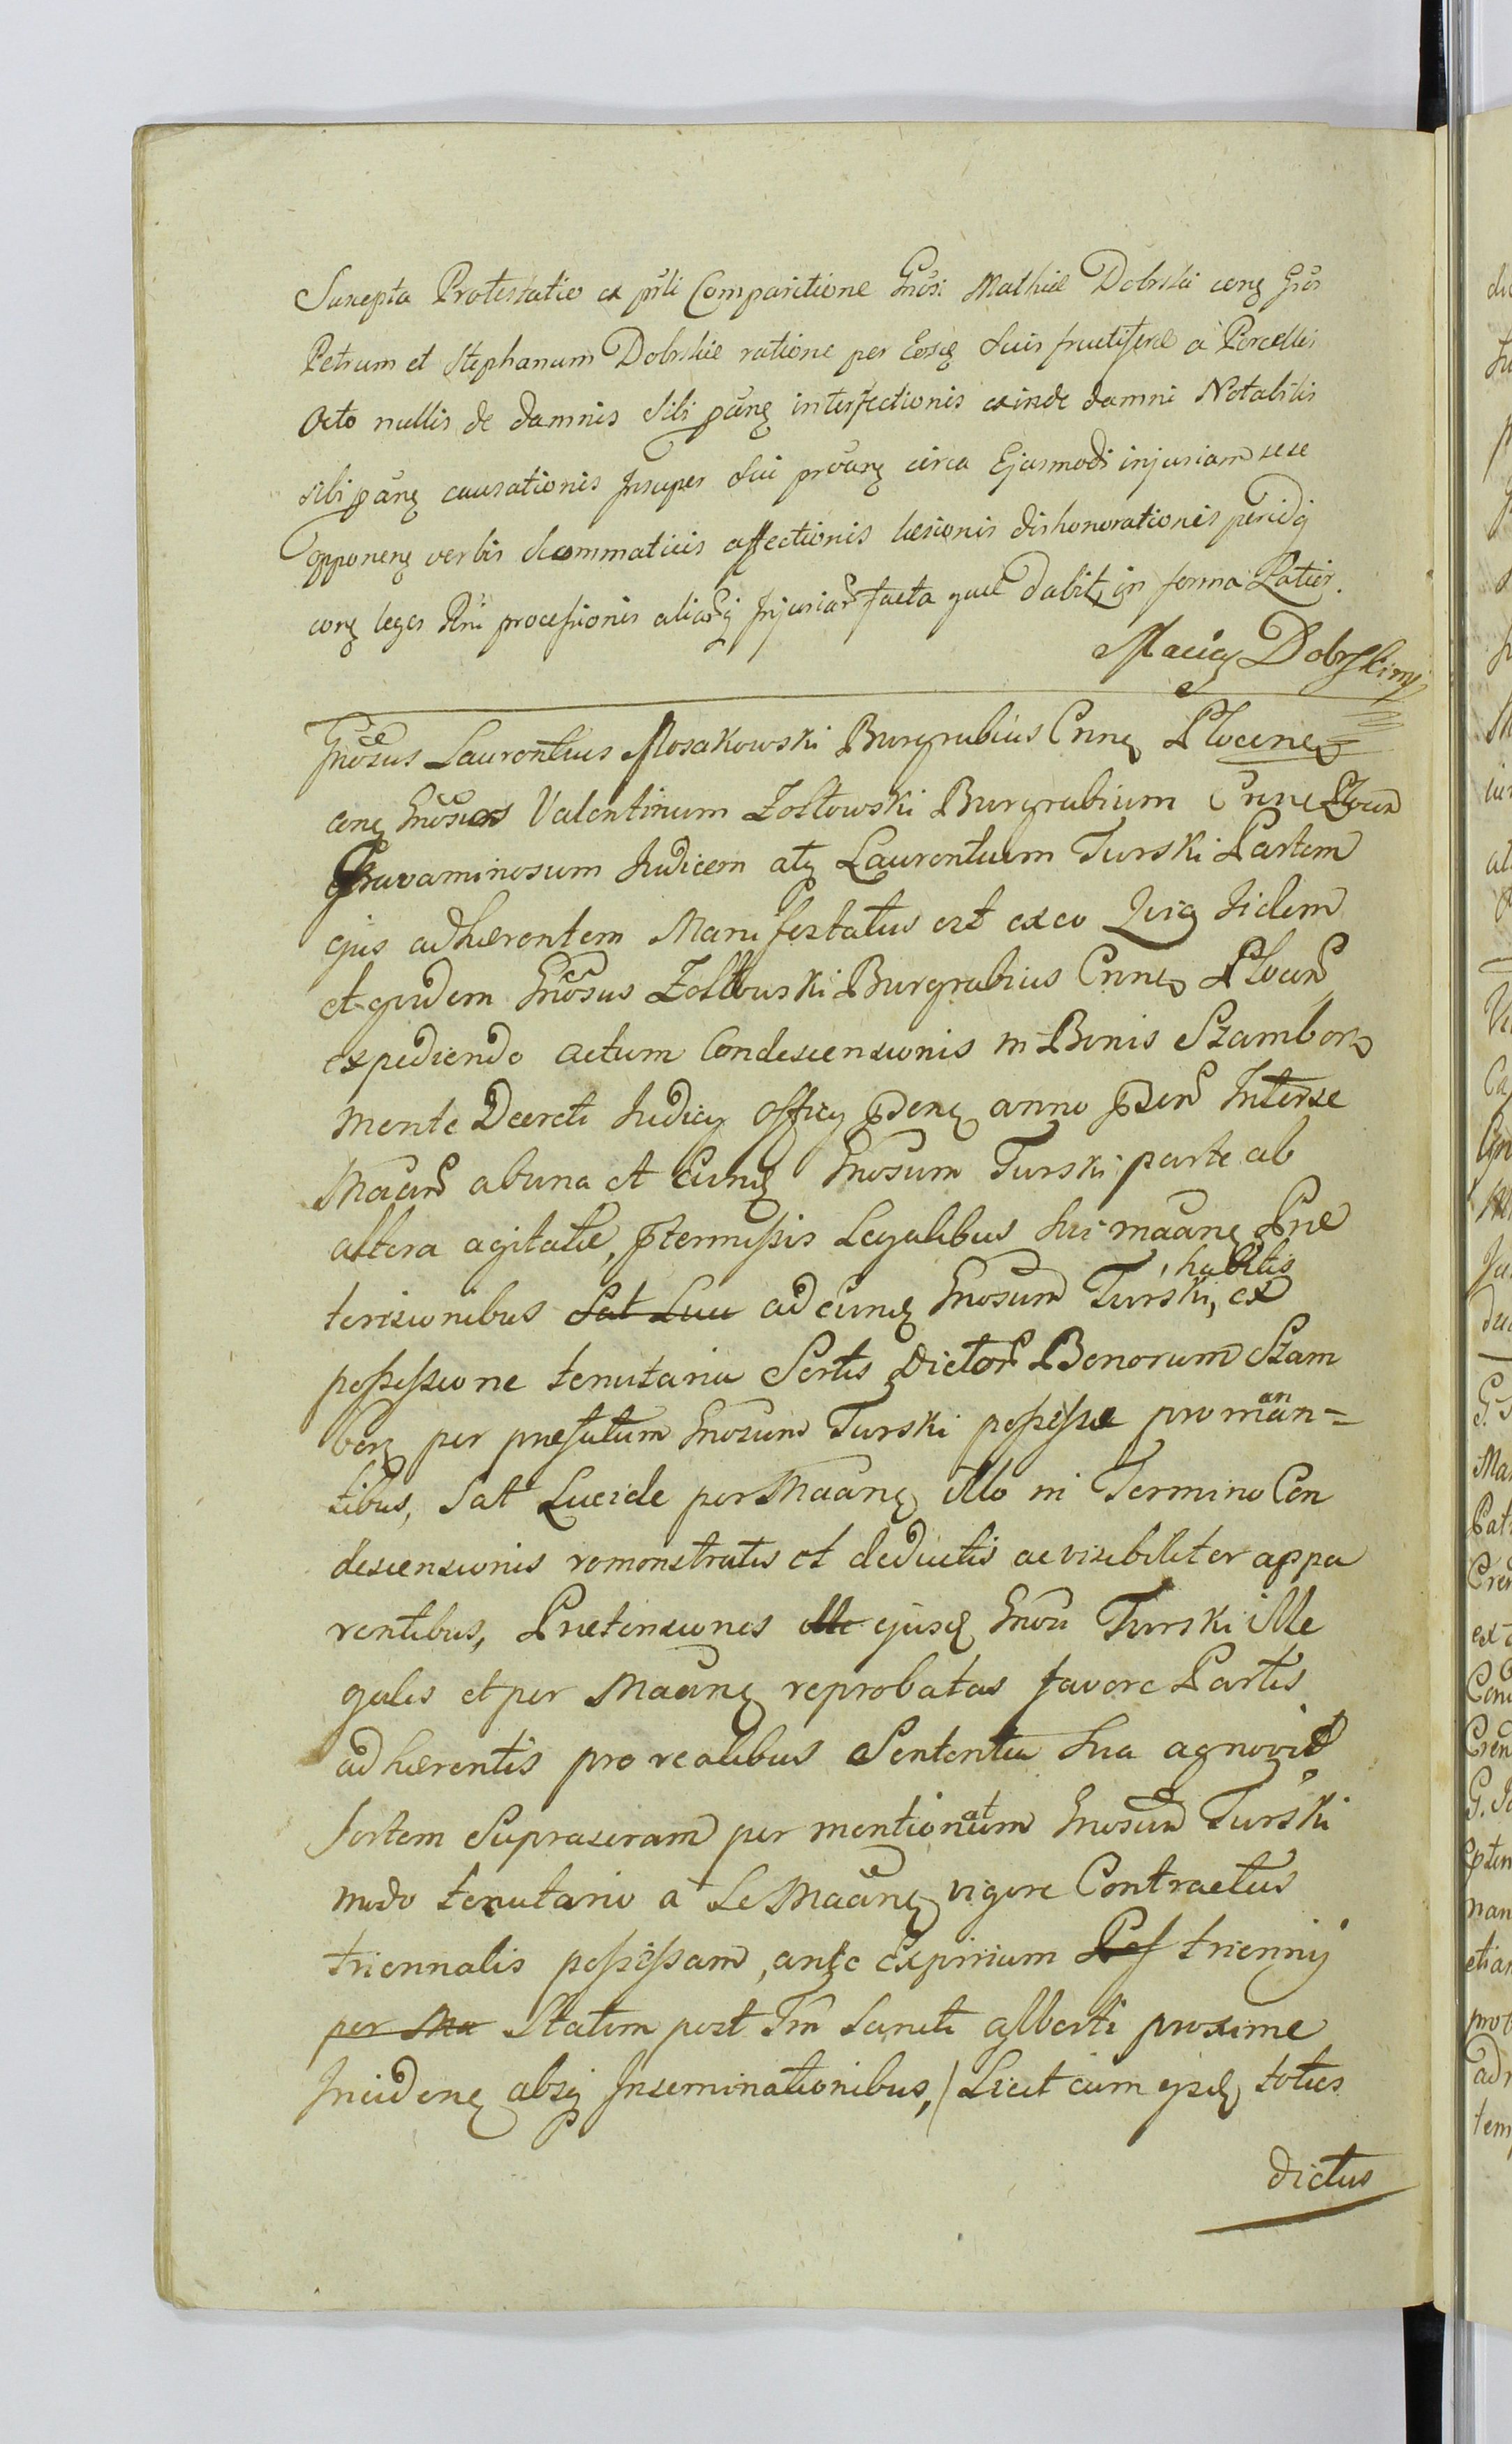 Suscepta Protestatio ex prsti Comparitione Gnosi Mathiæ Dobrski conq Gsos
Petrum et Stephanum Dobrskie ratione per Eosdq Suis fructiferæ a Porcellis
Octo nullis de damnis Sibi panq interfectionis exinde damni Notabilis
sibi panq causationis Insuper Sui provanq circa Ejusmodi injuriam sese
opponenq verbis scommaticis affectionis læsionis dishonorationis peridq
conq leges Rni processionis aliarq Injuriar facta quæ dabitq in forma Latior.
Maciey Dobrski mp
Gnosus Laurentius Mosakowski Burgrabius Cnnq Plocenq
conq Gnosos Valentinum Zołtowski Burgrabium Cnne Plocen
Gravaminosum Judicem atq Laurentium Turski Partem
ejus adhærentem Manifestatus est ex eo Quia Iidem
et quidem Gnosus Zołtowski Burgrabius Cnnq Plocen
expediendo actum Condescensionis in Bonis Szamborz
mente Decreti Judicij Officij pdenq anno pden Inter se
Maan ab una et Eundq Gnosum Turski parte ab
altera agitatæ, ptermissis Legalibus sui maanq Præ
tensionibus Sat Luci ad eundq Gnosum Turski, habitis ex
possessione tenutaria Sortis Dictor Bonorum Szam
borz per præfatum Gnosum Turski possessæ proman=
tibus, Sat Lucide per Maanq illo in Termino Con
descensionis remonstratis et deductis ac visibiliter appa
rentibus, Prætensiones ille ejusdq Gnosi Turski ille
gales et per Maanq reprobatas favore Partis
adhærentis pro realibus Sententia sua agnovit
Sortem Supraseram per mentionatum Gnosum Turski
modo tenutario a Se Maanq vigore Contractus
triennalis possessam, ante Expirium Pos triennij
per Ma Statim post Fm Sancti Alberti proxime
Incidenq absq Inseminationibus, / Licet cum ejsdq toties
dictus